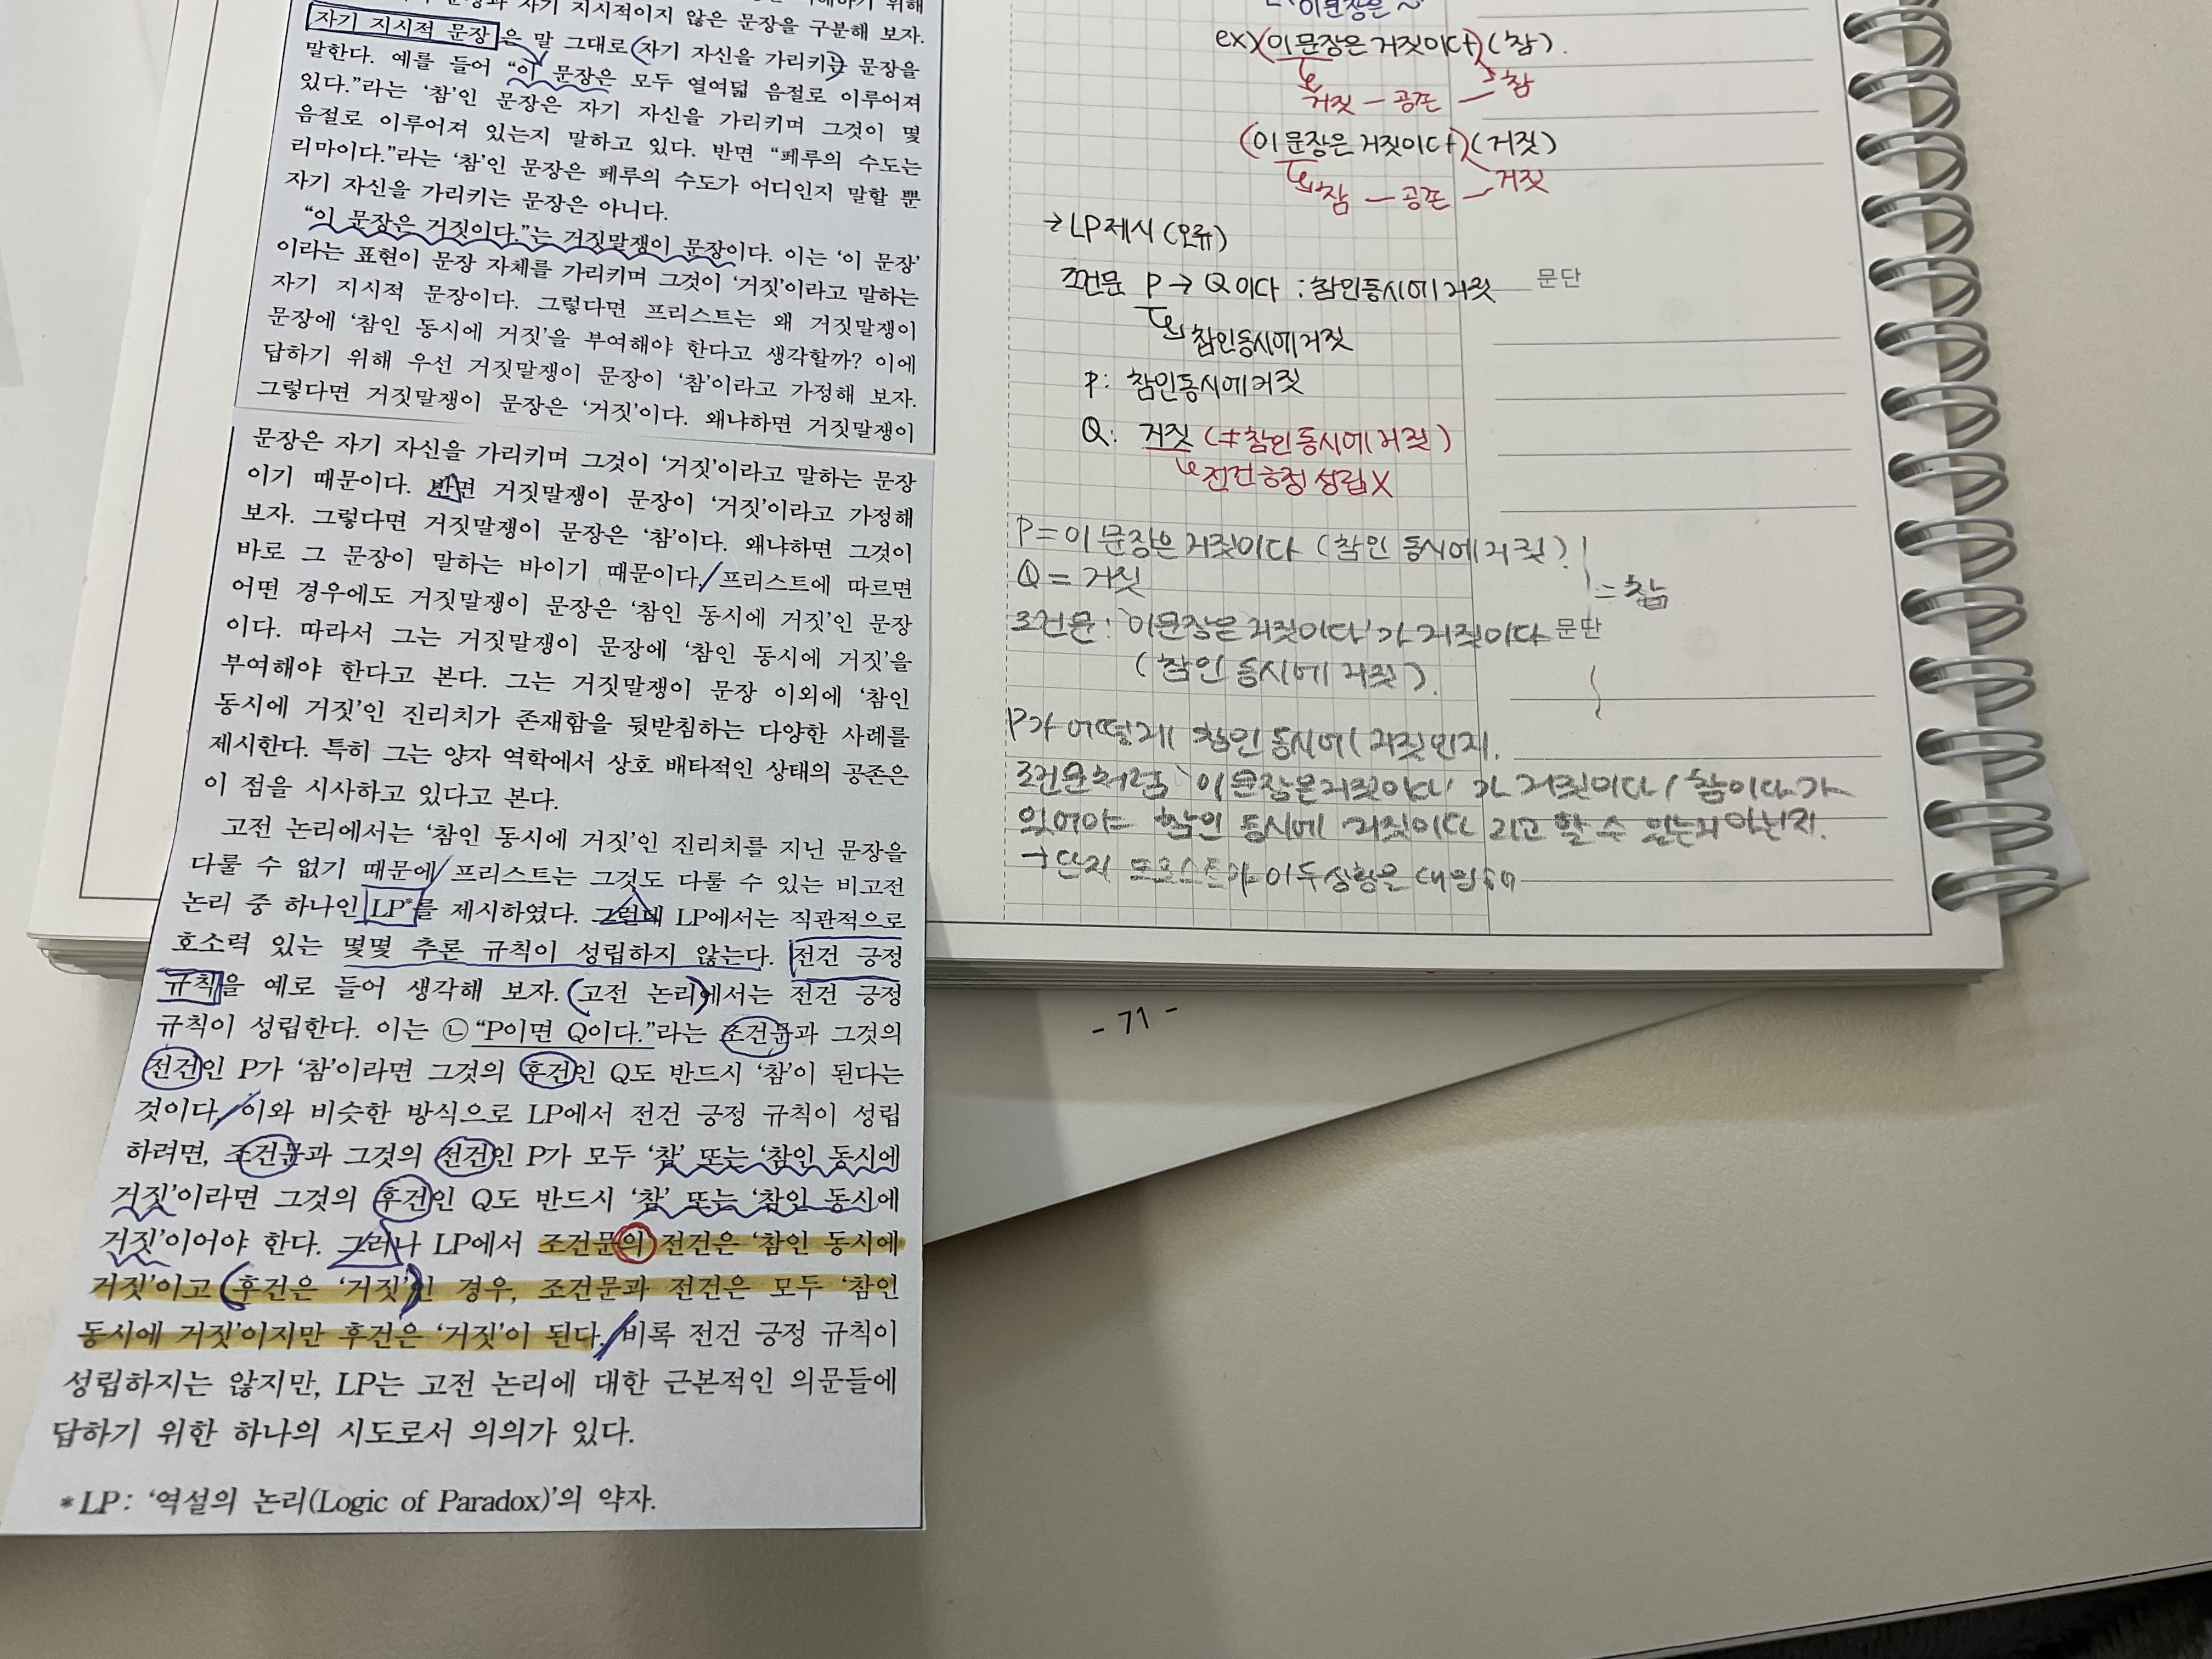 자기 지시적이지 않은 문장을 구분해 보자.
자기 지시적 문장은 말 그대로 자기 자신을 가리키는 문장을
말한다. 예를 들어 “이 문장은 모두 열여덟 음절로 이루어져
있다.”라는 ‘참’인 문장은 자기 자신을 가리키며 그것이 몇
음절로 이루어져 있는지 말하고 있다. 반면 “페루의 수도는
리마이다.”라는 ‘참’인 문장은 페루의 수도가 어디인지 말할 뿐
자기 자신을 가리키는 문장은 아니다.
“이 문장은 거짓이다.”는 거짓말쟁이 문장이다. 이는 ‘이 문장’
이라는 표현이 문장 자체를 가리키며 그것이 ‘거짓’이라고 말하는
자기 지시적 문장이다. 그렇다면 프리스트는 왜 거짓말쟁이
문장에 ‘참인 동시에 거짓’을 부여해야 한다고 생각할까? 이에
답하기 위해 우선 거짓말쟁이 문장이 ‘참’이라고 가정해 보자.
그렇다면 거짓말쟁이 문장은 ‘거짓’이다. 왜냐하면 거짓말쟁이
문장은 자기 자신을 가리키며 그것이 ‘거짓’이라고 말하는 문장
이기 때문이다. 반면 거짓말쟁이 문장이 ‘거짓’이라고 가정해
보자. 그렇다면 거짓말쟁이 문장은 ‘참’이다. 왜냐하면 그것이
바로 그 문장이 말하는 바이기 때문이다. 프리스트에 따르면
어떤 경우에도 거짓말쟁이 문장은 ‘참인 동시에 거짓’인 문장
이다. 따라서 그는 거짓말쟁이 문장에 ‘참인 동시에 거짓’을
부여해야 한다고 본다. 그는 거짓말쟁이 문장 이외에 ‘참인
동시에 거짓’인 진리치가 존재함을 뒷받침하는 다양한 사례를
제시한다. 특히 그는 양자 역학에서 상호 배타적인 상태의 공존은
이 점을 시사하고 있다고 본다.
고전 논리에서는 ‘참인 동시에 거짓’인 진리치를 지닌 문장을
다룰 수 없기 때문에 프리스트는 그것도 다룰 수 있는 비고전
논리 중 하나인 LP*를 제시하였다. 그런데 LP에서는 직관적으로
호소력 있는 몇몇 추론 규칙이 성립하지 않는다. 전건 긍정
규칙을 예로 들어 생각해 보자. 고전 논리에서는 전건 긍정
규칙이 성립한다. 이는 ㉡“P이면 Q이다.”라는 조건문과 그것의
전건인 P가 ‘참’이라면 그것의 후건인 Q도 반드시 ‘참’이 된다는
것이다. 이와 비슷한 방식으로 LP에서 전건 긍정 규칙이 성립
하려면, 조건문과 그것의 전건인 P가 모두 ‘참’ 또는 ‘참인 동시에
거짓’이라면 그것의 후건인 Q도 반드시 ‘참’ 또는 ‘참인 동시에
거짓’이어야 한다. 그러나 LP에서 조건문의 전건은 ‘참인 동시에
거짓’이고 후건은 ‘거짓’인 경우, 조건문과 전건은 모두 ‘참인
동시에 거짓’이지만 후건은 ‘거짓’이 된다. 비록 전건 긍정 규칙이
성립하지는 않지만, LP는 고전 논리에 대한 근본적인 의문들에
답하기 위한 하나의 시도로서 의의가 있다.
*LP: ‘역설의 논리(Logic of Paradox)’의 약자.
'이 문장은 ~'
ex) (이 문장은 거짓이다) (참).
거짓 - 공존 - 참
(이 문장은 거짓이다) (거짓)
참 - 공존 - 거짓
→ LP 제시 (오류)
조건문 P → Q 이다 : 참인 동시에 거짓
문단
참인 동시에 거짓
P: 참인 동시에 거짓
Q: 거짓 (≠참인 동시에 거짓)
전건 긍정 성립 X
P = 이 문장은 거짓이다 (참인 동시에 거짓)
Q = 거짓
= 참
조건문: '이 문장은 거짓이다'가 거짓이다
문단
(참인 동시에 거짓).
P가 어떻게 참인 동시에 거짓인지.
조건문처럼 '이 문장은 거짓이다'가 거짓이다 / 참이다가
있어야 참인 동시에 거짓이다 라고 할 수 있는지 아닌지.
→ 단지 프리스트가 이 두 상황은 대입해
- 71 -